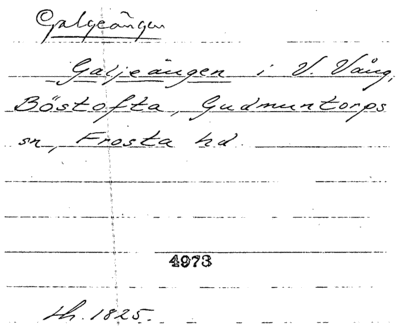 Galgeängen
Galjeängen i V. Vång,
Böstofta, Gudmuntorps
sn, Frosta hd.
4973
lh. 1825.